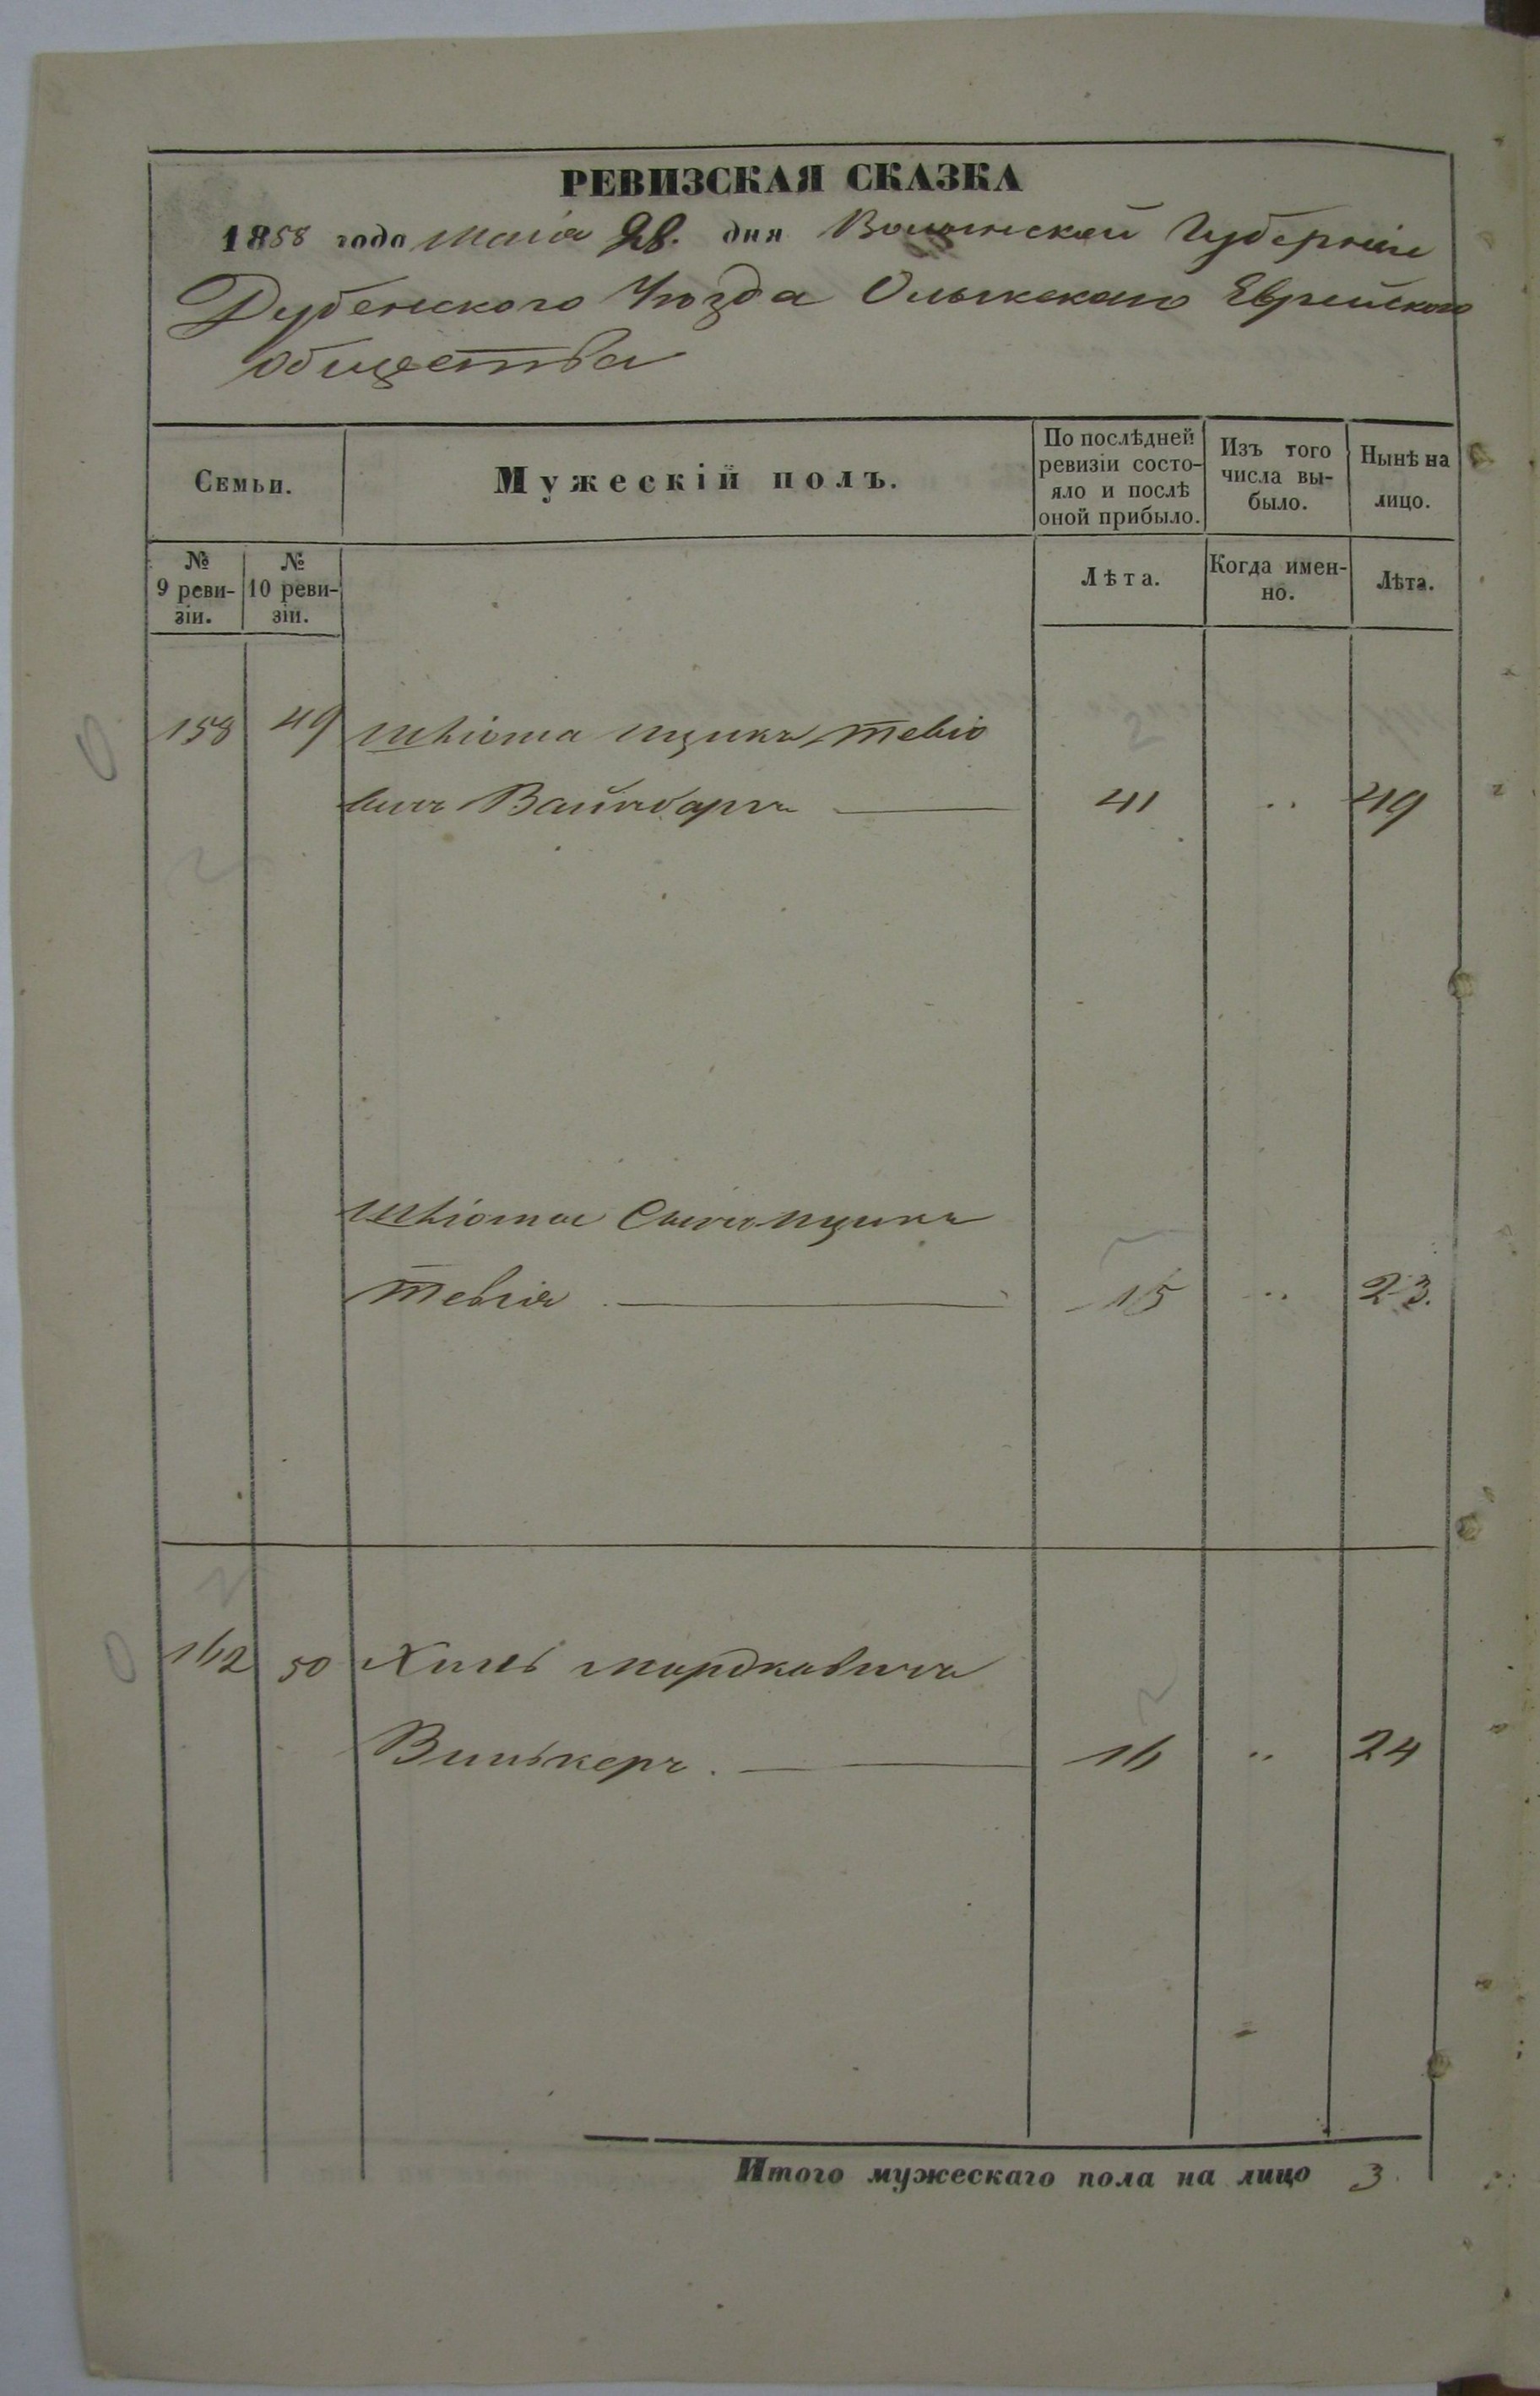 РЕВИЗСКАЯ СКАЗКА
1858 года Маія 28. дня Волынской Губерніи
Дубенского Уѣзда Олыкскаго Еврейского
общества
Семьи.
Мужескій полъ.
По послѣдней
ревизіи состо-
яло и послѣ
оной прибыло.
Изъ того
числа вы-
было.
Нынѣ на
лицо.
№
9 реви-
зіи.
№
10 реви-
зіи.
Лѣта.
Когда имен-
но.
Лѣта.
158 49 Шліома Ицикъ Тевіо
вичъ Вайнбаргъ 41 .. 49
Шліома Ицика
Тевія 15 .. 23.
162 50 Хиль Мордковичъ
Винькеръ. 16 .. 24
Итого мужескаго пола на лицо 3.